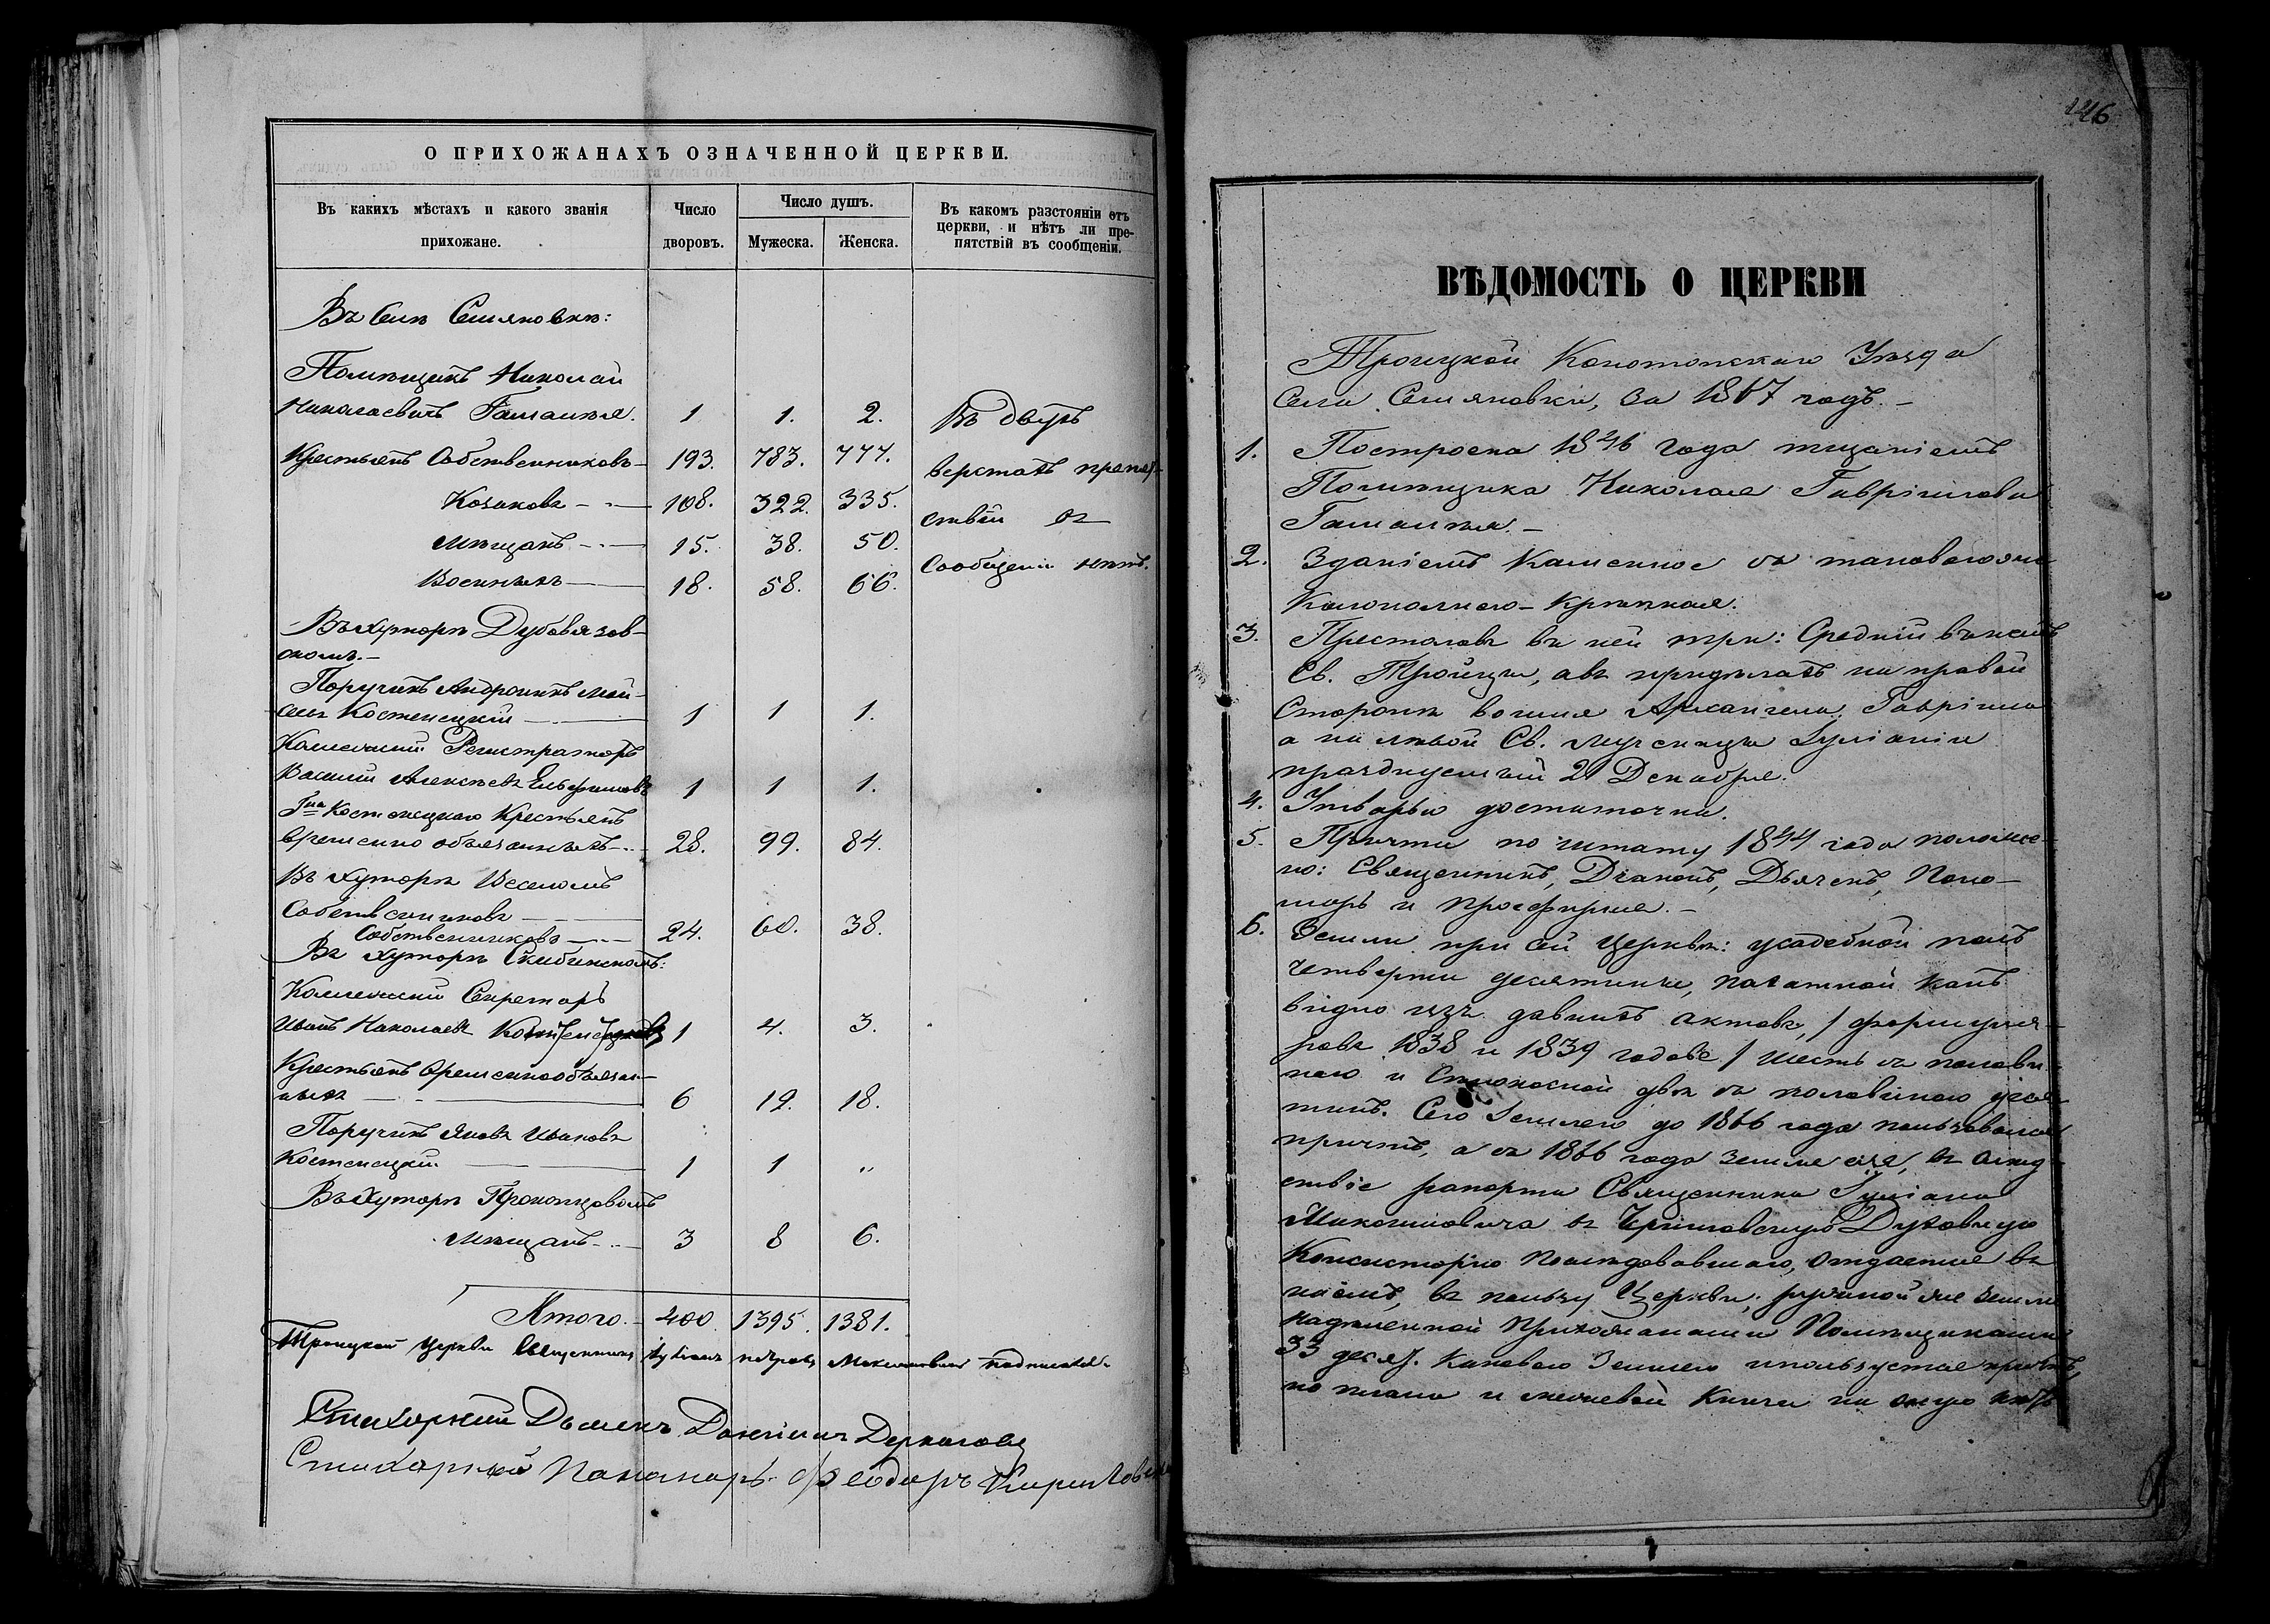 О ПРИХОЖАНАХЪ ОЗНАЧЕННОЙ ЦЕРКВИ.
Въ какихъ мѣстахъ и какого званія прихожане.
Число дворовъ.
Число душъ.
Мужеска.
Женска.
Въ какомъ разстояніи отъ церкви, и нѣтъ ли препятствій въ сообщеніи.
Въ Селѣ Семяновкѣ:
Помѣщикъ Николай
Николаевичъ Гамалѣя. 1 1. 2. Въ двухъ
Крестьянъ Собственниковъ 193. 783. 777. верстахъ препят-
Козаковъ 108. 322. 335. ствій въ
Мѣщанъ 15. 38. 50. Сообщеніи нѣтъ.
Военныхъ 18. 58. 66.
Въ хуторѣ Дубовязов-
скомъ.
Поручикъ Андроникъ Мой-
сеевъ Костенецкій 1 1 1.
Коллежскій Регистраторъ
Василій Алексѣевъ 1 1 1.
Г-на Костенецкаго Крестьянъ
временно обязанныхъ 28. 99. 84.
Въ хуторѣ Веселомъ
Собственниковъ
Собственниковъ 24. 60. 38.
Въ хуторѣ Скибинскомъ:
Коллежскій Секретарь
Иванъ Николаевъ 1 4. 3.
Крестьянъ временнообязан-
ныхъ 6 19. 18.
Поручикъ Яковъ Ивановъ
Костенецкій 1 1 "
Въ Хуторѣ
Мѣщанъ 3 8 6.
Итого. 400. 1395. 1381.
Троицкой Церкви Священникъ Іуліанъ Петровъ Максимовичъ подписался
Стихарный Дьячекъ Даніилъ
Стихарный Пономарь Феодоръ
146
ВѢДОМОСТЬ О ЦЕРКВИ
Троицкой Конотопскаго Уѣзда
Села Семяновки, За 1867 годъ.
1. Построена 1846 года тщаніемъ
Помѣщика Николая Гавріилова
Гамалѣя.
2. Зданіемъ Каменное съ таковоюже
Колокольнею - Крѣпкая.
3. Престоловъ въ ней три: Средній въ имя
Св. Тройцы, а въ придѣлахъ на правой
Сторонѣ во имя Архангела Гавріила
а на лѣвой Св. Мученицы Іуліаніи
празднуемый 21 Декабря.
4. Утварью достаточна.
5. Причта по штату 1844 года положе-
но: Священникъ, Діаконъ, Дьячекъ, Поно-
марь и просфирня.
6. Земли при сей Церкви: усадебной
четверти десятины, пахатной какъ
видно изъ давнихъ актовъ, / формуля-
ровъ 1838 и 1839 годовъ / шесть съ полови-
ною и Сѣнокосной двѣ съ половиною деся-
тинъ. Сею Землею до 1866 года пользовался
причтъ, а съ 1866 года Земля сія, въ слѣд-
ствіе рапорта Священника Іуліана
Максимовича въ Черниговскую Духовную
Консисторію послѣдовавшаго, отдается въ
наемъ, въ пользу Церкви; ружной же Земли
надѣленной Прихожанами Помѣщиками
33 десят. Каковою Землею и пользуется причтъ,
но плана и межевой Книги на оную нѣтъ